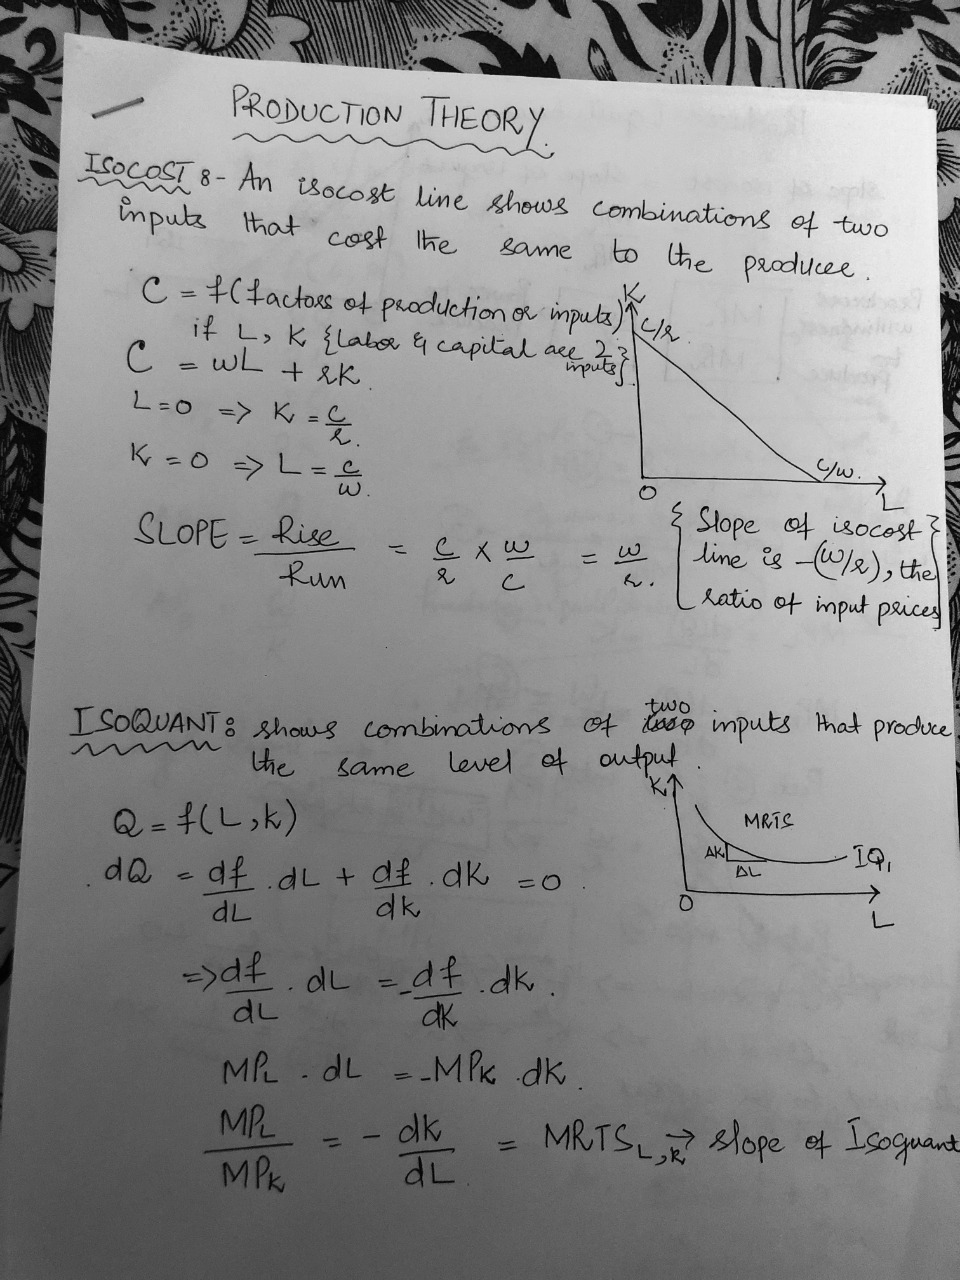 PRODUCTION THEORY.
ISOCOST :- An isocost line shows combinations of two
inputs that cost the same to the producer.
C = f(factors of production or inputs)
if L, K {Labor & capital are 2 inputs}
C = wL + rK
L=0 => K = C/r.
K=0 => L = C/w.
K
C/r
C/w.
O
L
SLOPE = Rise/Run = C/r x w/C = w/r.
{Slope of isocost
line is -(w/r), the
ratio of input prices}
ISOQUANT: shows combinations of two inputs that produce
the same level of output.
Q = f(L,K)
dQ = df/dL . dL + df/dK . dK = 0.
K
MRTS
ΔK
ΔL
IQ1
O
L
=> df/dL . dL = -df/dK . dK.
MPL . dL = -MPK . dK.
MPL/MPK = - dK/dL = MRTS L,K → slope of Isoquant